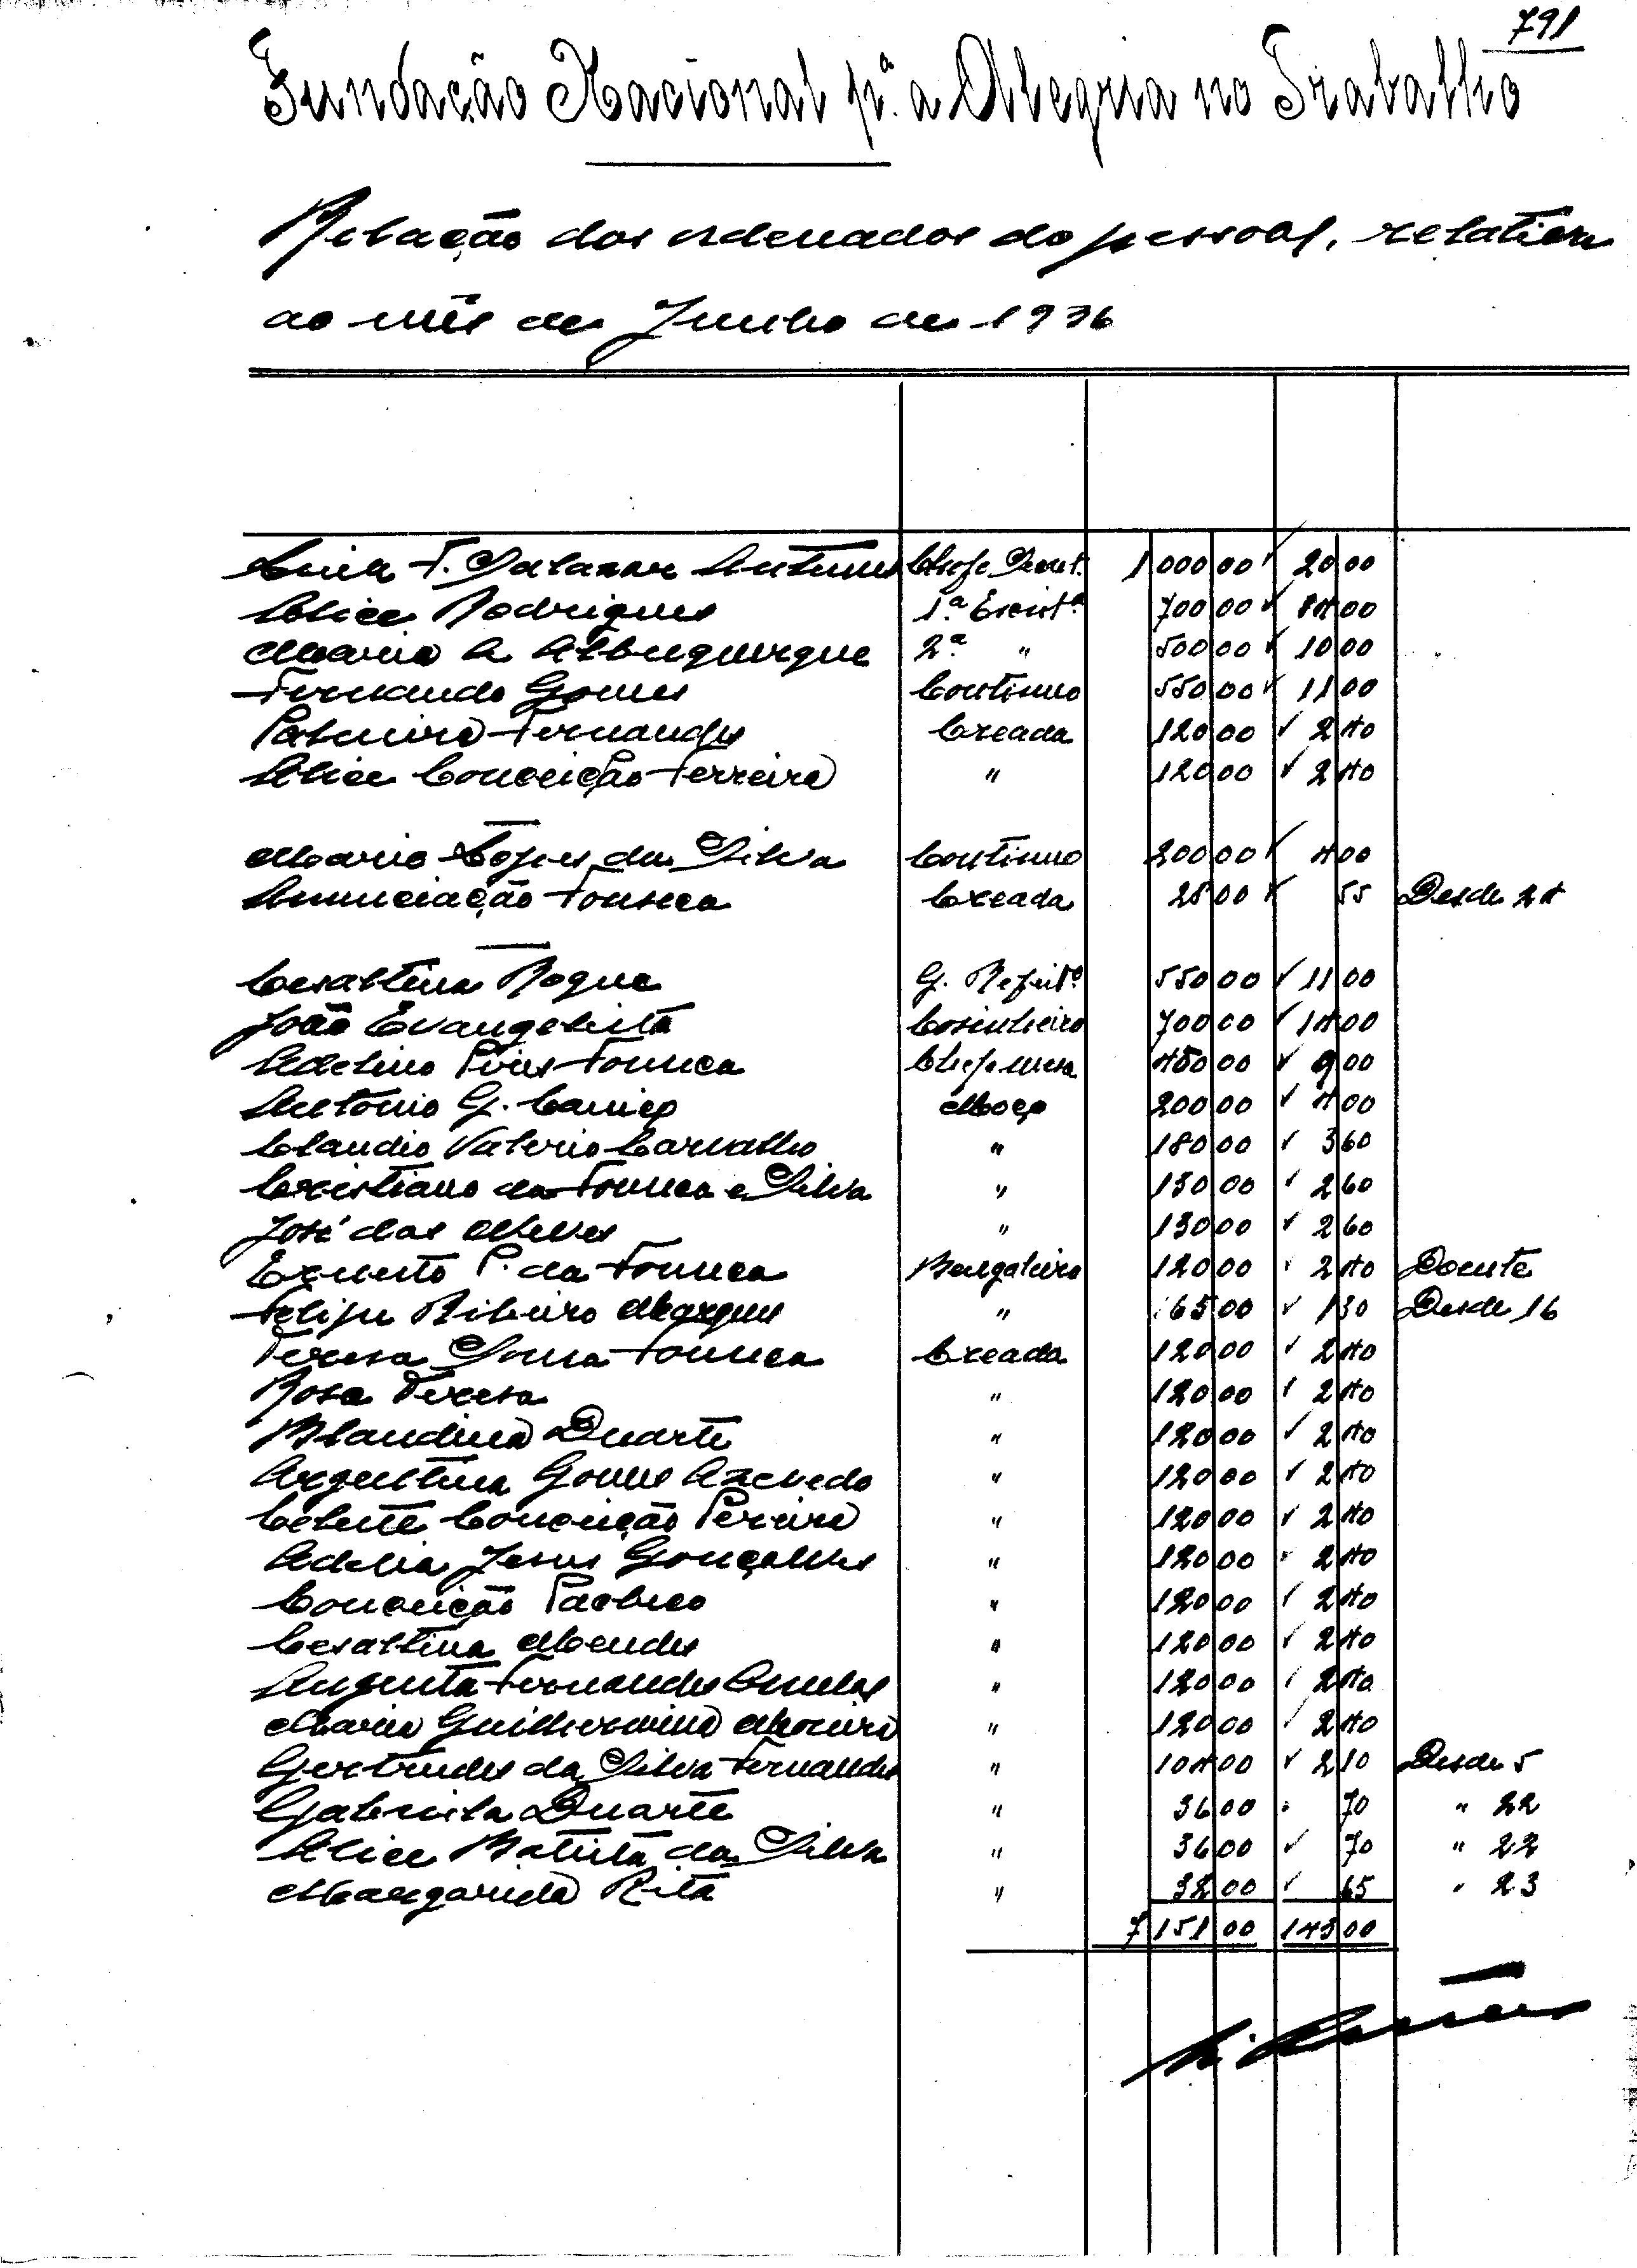 791
Fundação Nacional pª. a Alegria no Trabalho
Relação dos ordenados do pessoal, relativa
ao mês de Junho de 1936
T. Salazar Antunes Chefe Secret. 1 000 00 20 00
Alice Rodrigues 1.ª Escritª 700 00 14 00
Maria A. Albuquerque 2.ª " 500 00 10 00
Fernando Gomes Contínuo 550 00 11 00
Palmira Fernandes Creada 120 00 2 40
Alice Conceição Ferreira " 120 00 2 40
Mario Lopes da Silva Contínuo 200 00 4 00
Anunciação Fonseca Creada 28 00 55 Desde 24
Cesaltina Roque G. Refeitº 550 00 11 00
João Evangelista Cosinheiro 700 00 14 00
Adelino Pires Fonseca Chefe mesa 450 00 9 00
António G. Moço 200 00 4 00
Claudio Valerio Carvalho " 180 00 3 60
Cristiano da Fonseca e Silva " 130 00 2 60
José das Neves " 130 00 2 60
Ernesto P. da Fonseca Bengaleiro 120 00 2 40 Doente
Felipe Ribeiro Marques " 65 00 1 30 Desde 16
Teresa Sousa Fonseca Creada 120 00 2 40
Rosa Teresa " 120 00 2 40
Blandina Duarte " 120 00 2 40
Argentina Gomes Azevedo " 120 00 2 40
Celeste Conceição Pereira " 120 00 2 40
Adelia Jesus Gonçalves " 120 00 2 40
Conceição Pacheco " 120 00 2 40
Cesaltina Mendes " 120 00 2 40
Augusta Fernandes " 120 00 2 40
Maria Guilhermina Moreira " 120 00 2 40
Gertrudes da Silva Fernandes " 104 00 2 10 Desde 5
Gabriela Duarte " 36 00 70 " 22
Alice Batista da Silva " 36 00 70 " 22
Margarida Rita " 32 00 65 " 23
7 151 00 143 00